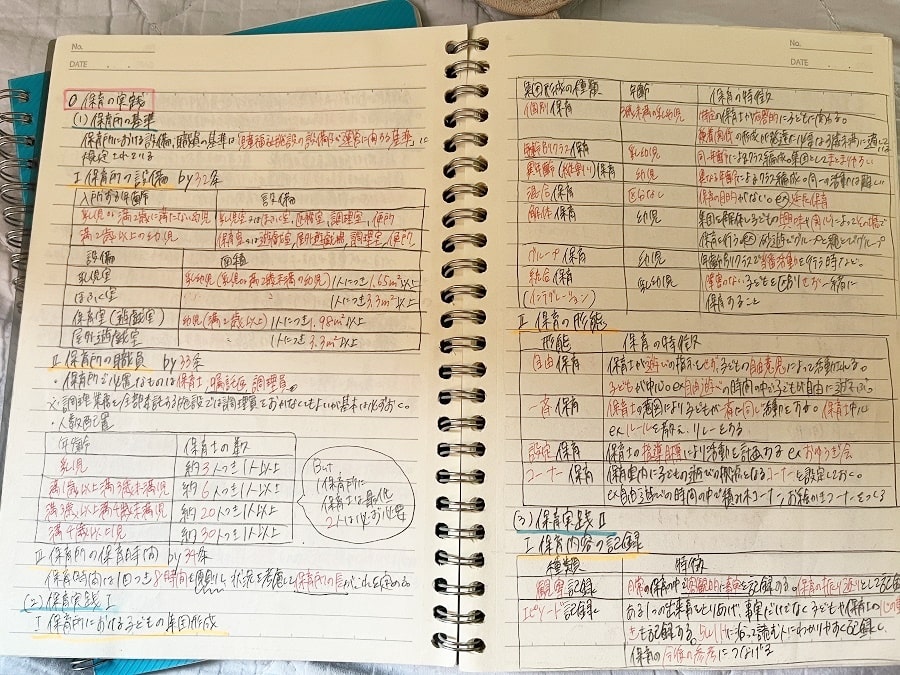 No.
DATE
○保育の実践
(1)保育所の基準
保育所における設備、職員の基準は「児童福祉施設の設備及び運営に関する基準」に
規定されている
I 保育所の設備 by32条
入所する年齢 設備
乳児か満2歳に満たない幼児 乳児室又はほふく室、医務室、調理室、便所
満2歳以上の幼児 保育室又は遊戯室、屋外遊戯場、調理室、便所
設備 面積
乳児室 乳幼児(乳児か満2歳未満の幼児)1人につき1.65m²以上
ほふく室 〃 1人につき3.3m²以上
保育室(遊戯室) 幼児(満2歳以上) 1人につき1.98m²以上
屋外遊戯室 〃 1人につき3.3m²以上
II 保育所の職員 by33条
・保育所に必要なものは保育士、嘱託医、調理員。
※調理業務を全部委託する施設では調理員をおかなくてもよいが基本は必ずおく。
・人数配置
年齢 保育士の数
乳児 約3人つき1人以上
満1歳以上満3歳未満児 約6人つき1人以上
満3歳以上満4歳未満児 約20人つき1人以上
満4歳以上児 約30人つき1人以上
But
1保育所に
保育士は最低
2人は必ず必要
III 保育所の保育時間 by34条
保育時間は1日つき8時間を原則とし、状況を考慮して保育所の長がこれを定める
(2)保育実践I
I 保育所における子どもの集団形成
No.
DATE
集団形成の種類 年齢 保育の特徴
個別保育 3歳未満の乳幼児 特定の保育士が応答的に子どもに関わる。
年齢別クラス保育 乳幼児 同一年齢によるクラス編成の集団として
異年齢(縦割り)保育 幼児 異なる年齢によるクラス編成
混合保育 区分なし 保育の目的がない。ex)延長保育
解体保育 幼児 集団を解体し子どもの興味や関心によって
保育を行う ex)砂遊びグループと縄とびグループ
グループ保育 幼児 年齢別クラスで当番活動を行う時など。
統合保育 乳幼児 障害のない子どもと区別せず、一緒に
(インテグレーション) 保育すること
II 保育の形態
形態 保育の特徴
自由保育 保育士が遊びの指示をせず、子どもの自由意思によって活動される。
子どもが中心。ex自由遊びの時間の中で子どもが自由に遊ぶもの。
一斉保育 保育士の意図により子どもが一斉に同じ活動をする。保育士中心
exルールを教え、リレーをする
設定保育 保育士の指導目標により活動を計画する exおゆうぎ会
コーナー保育 保育室内に子どもの遊びの拠点となるコーナーを設定しておく。
ex自由遊びの時間の中で積み木コーナー、お絵かきコーナーをつくる
(3)保育実践II
I 保育内容の記録
種類 特徴
観察記録 日常の保育の中で客観的に事実を記録する。保育の振り返りとして記録
エピソード記録 ある1つの出来事をとりあげ、事実だけでなく子どもや保育士の心の動
きも記録する。エピソードに沿って読む人にわかりやすく記録し、
保育の今後の参考につなげる